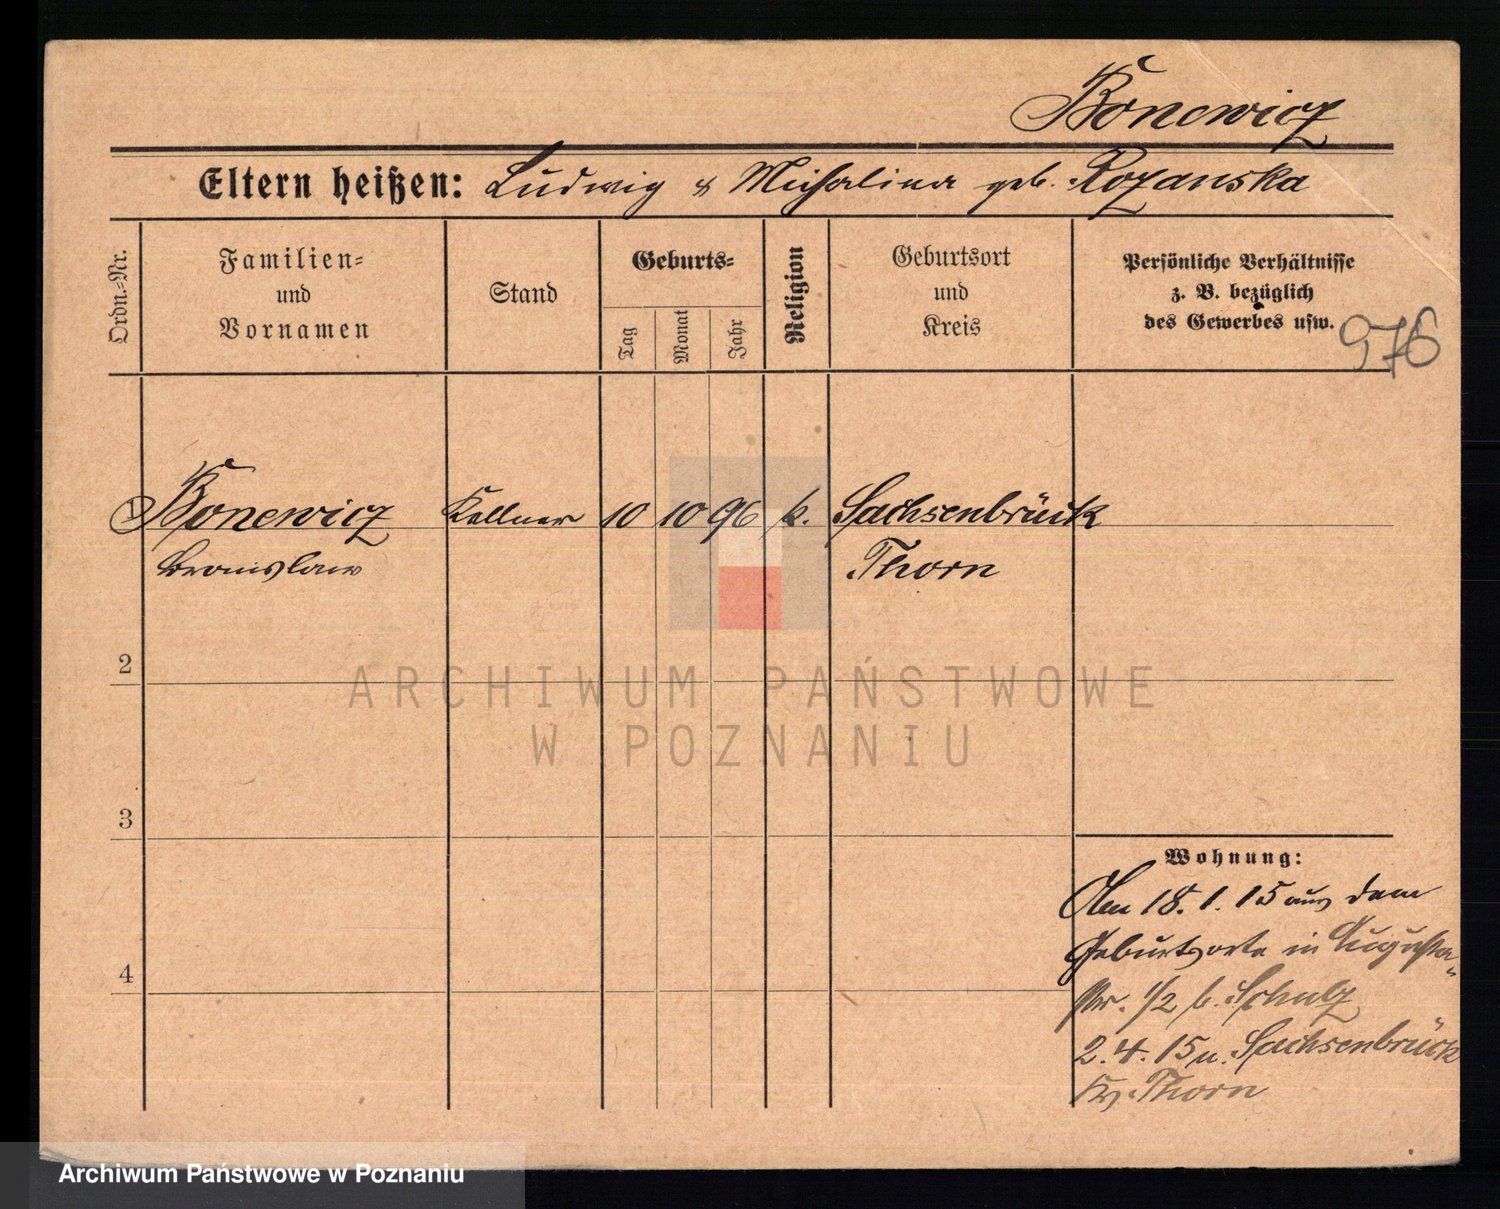 Bonewicz
Eltern heißen: Ludwig & Michalina geb. Rozanska
Ordn.=Nr.
Familien=
und
Vornamen
Stand
Geburts=
Tag
Monat
Jahr
Religion
Geburtsort
und
Kreis
Persönliche Verhältnisse
z. B. bezüglich
des Gewerbes usw.
976
1 Bonewicz Kellner 10 10 96 k. Sachsenbrück
Bronislaw Thorn
2
3
4
Wohnung:
Am 18. 1. 15 aus dem
Geburtsorte in Augusta-
str. 1/2 b. Schulz
2. 4. 15 n. Sachsenbrück
Kr. Thorn
ARCHIWUM PAŃSTWOWE
W POZNANIU
Archiwum Państwowe w Poznaniu